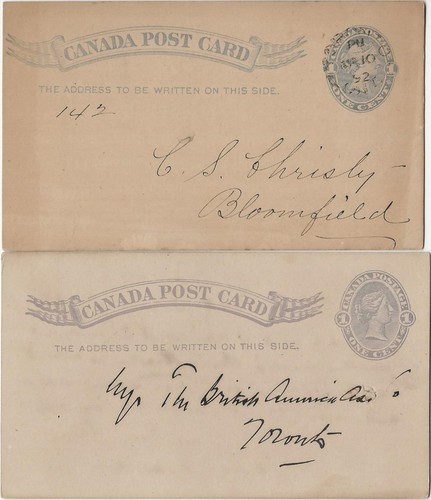 CANADA POST CARD
THE ADDRESS TO BE WRITTEN ON THIS SIDE.
PM
10
92
ONE CENT
142
C. S. Chrisly
Bloomfield
CANADA POST CARD
THE ADDRESS TO BE WRITTEN ON THIS SIDE.
CANADA POSTAGE
1 1
ONE CENT
The British America Ass Co
Toronto